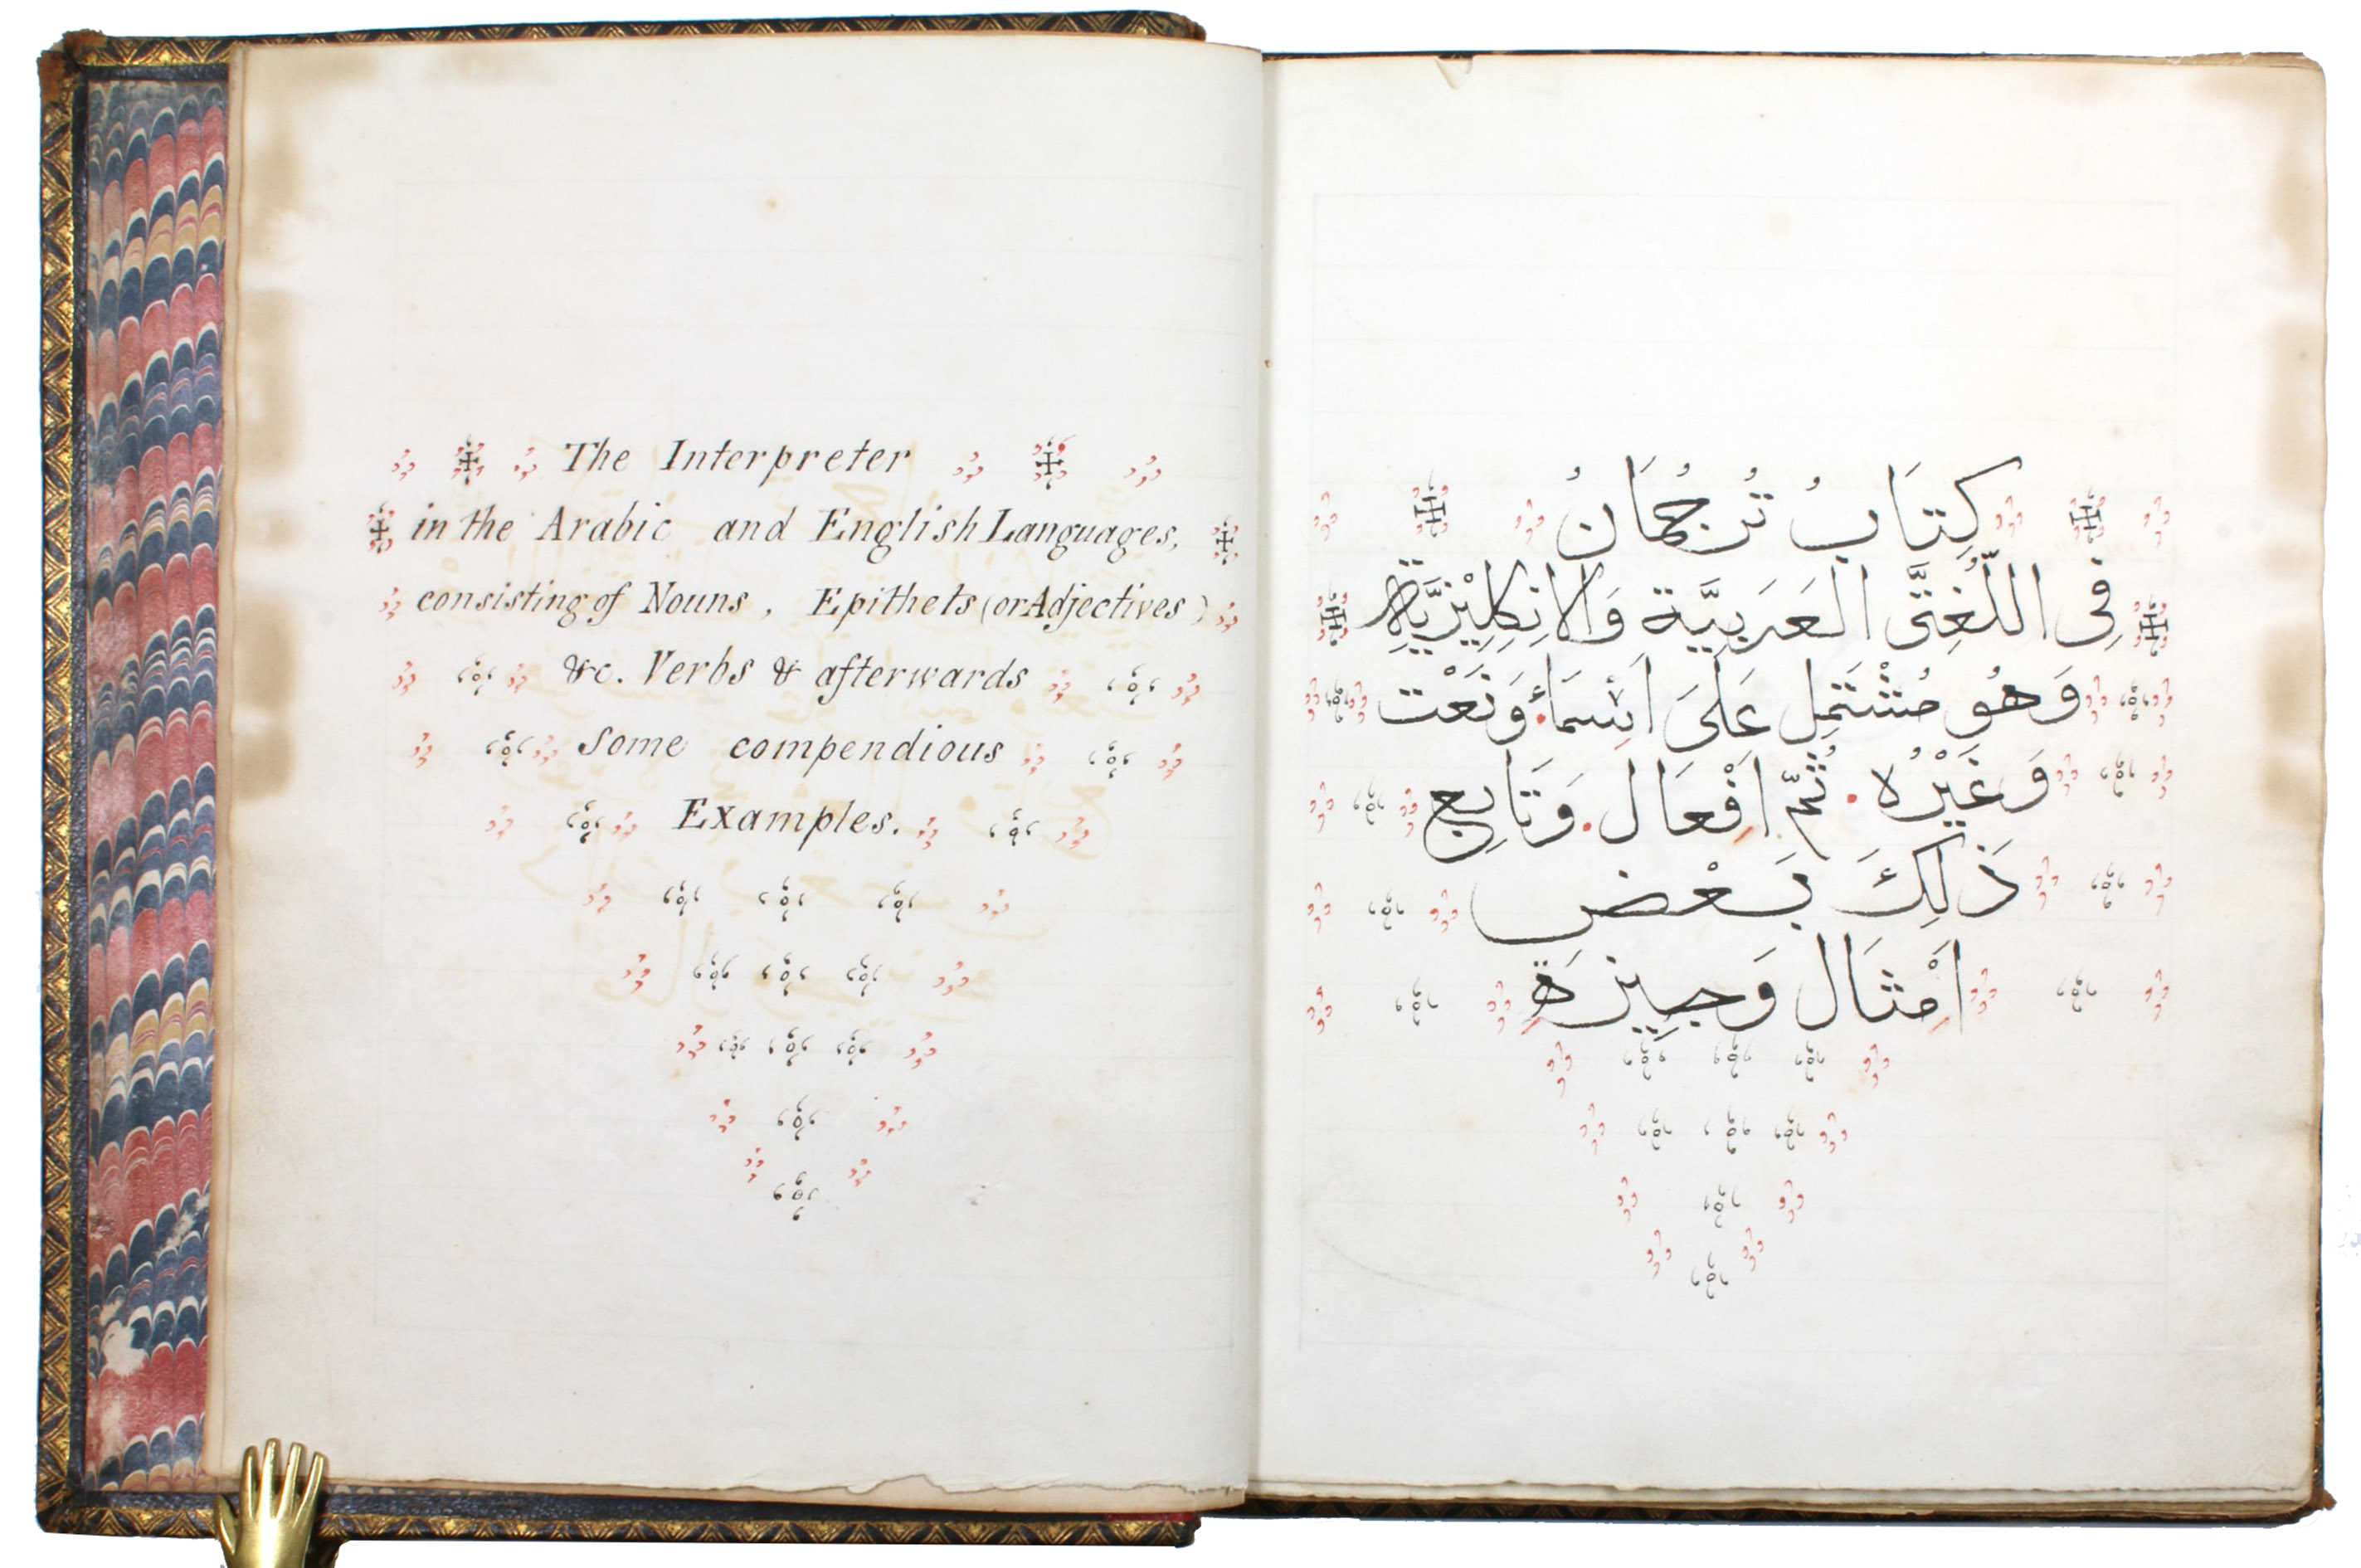 The Interpreter
in the Arabic and English Languages,
consisting of Nouns, Epithets (or Adjectives)
&c. Verbs & afterwards
Some compendious
Examples.
كِتَابُ تُرجُمَانُ
فِى اللُّغِتَّى العَرَبِيَّة وَالانِكِلِيْزِيَّةِ
وَهُو مُشْتَمِل عَلَىَ اَسْمَاءٔ. وَنَعْت
وَغَيْرُه. ثُمّ اَفْعَال. وَتَابِع
ذَلِكَ بَعْض
اَمْثَال وَجِيزَة